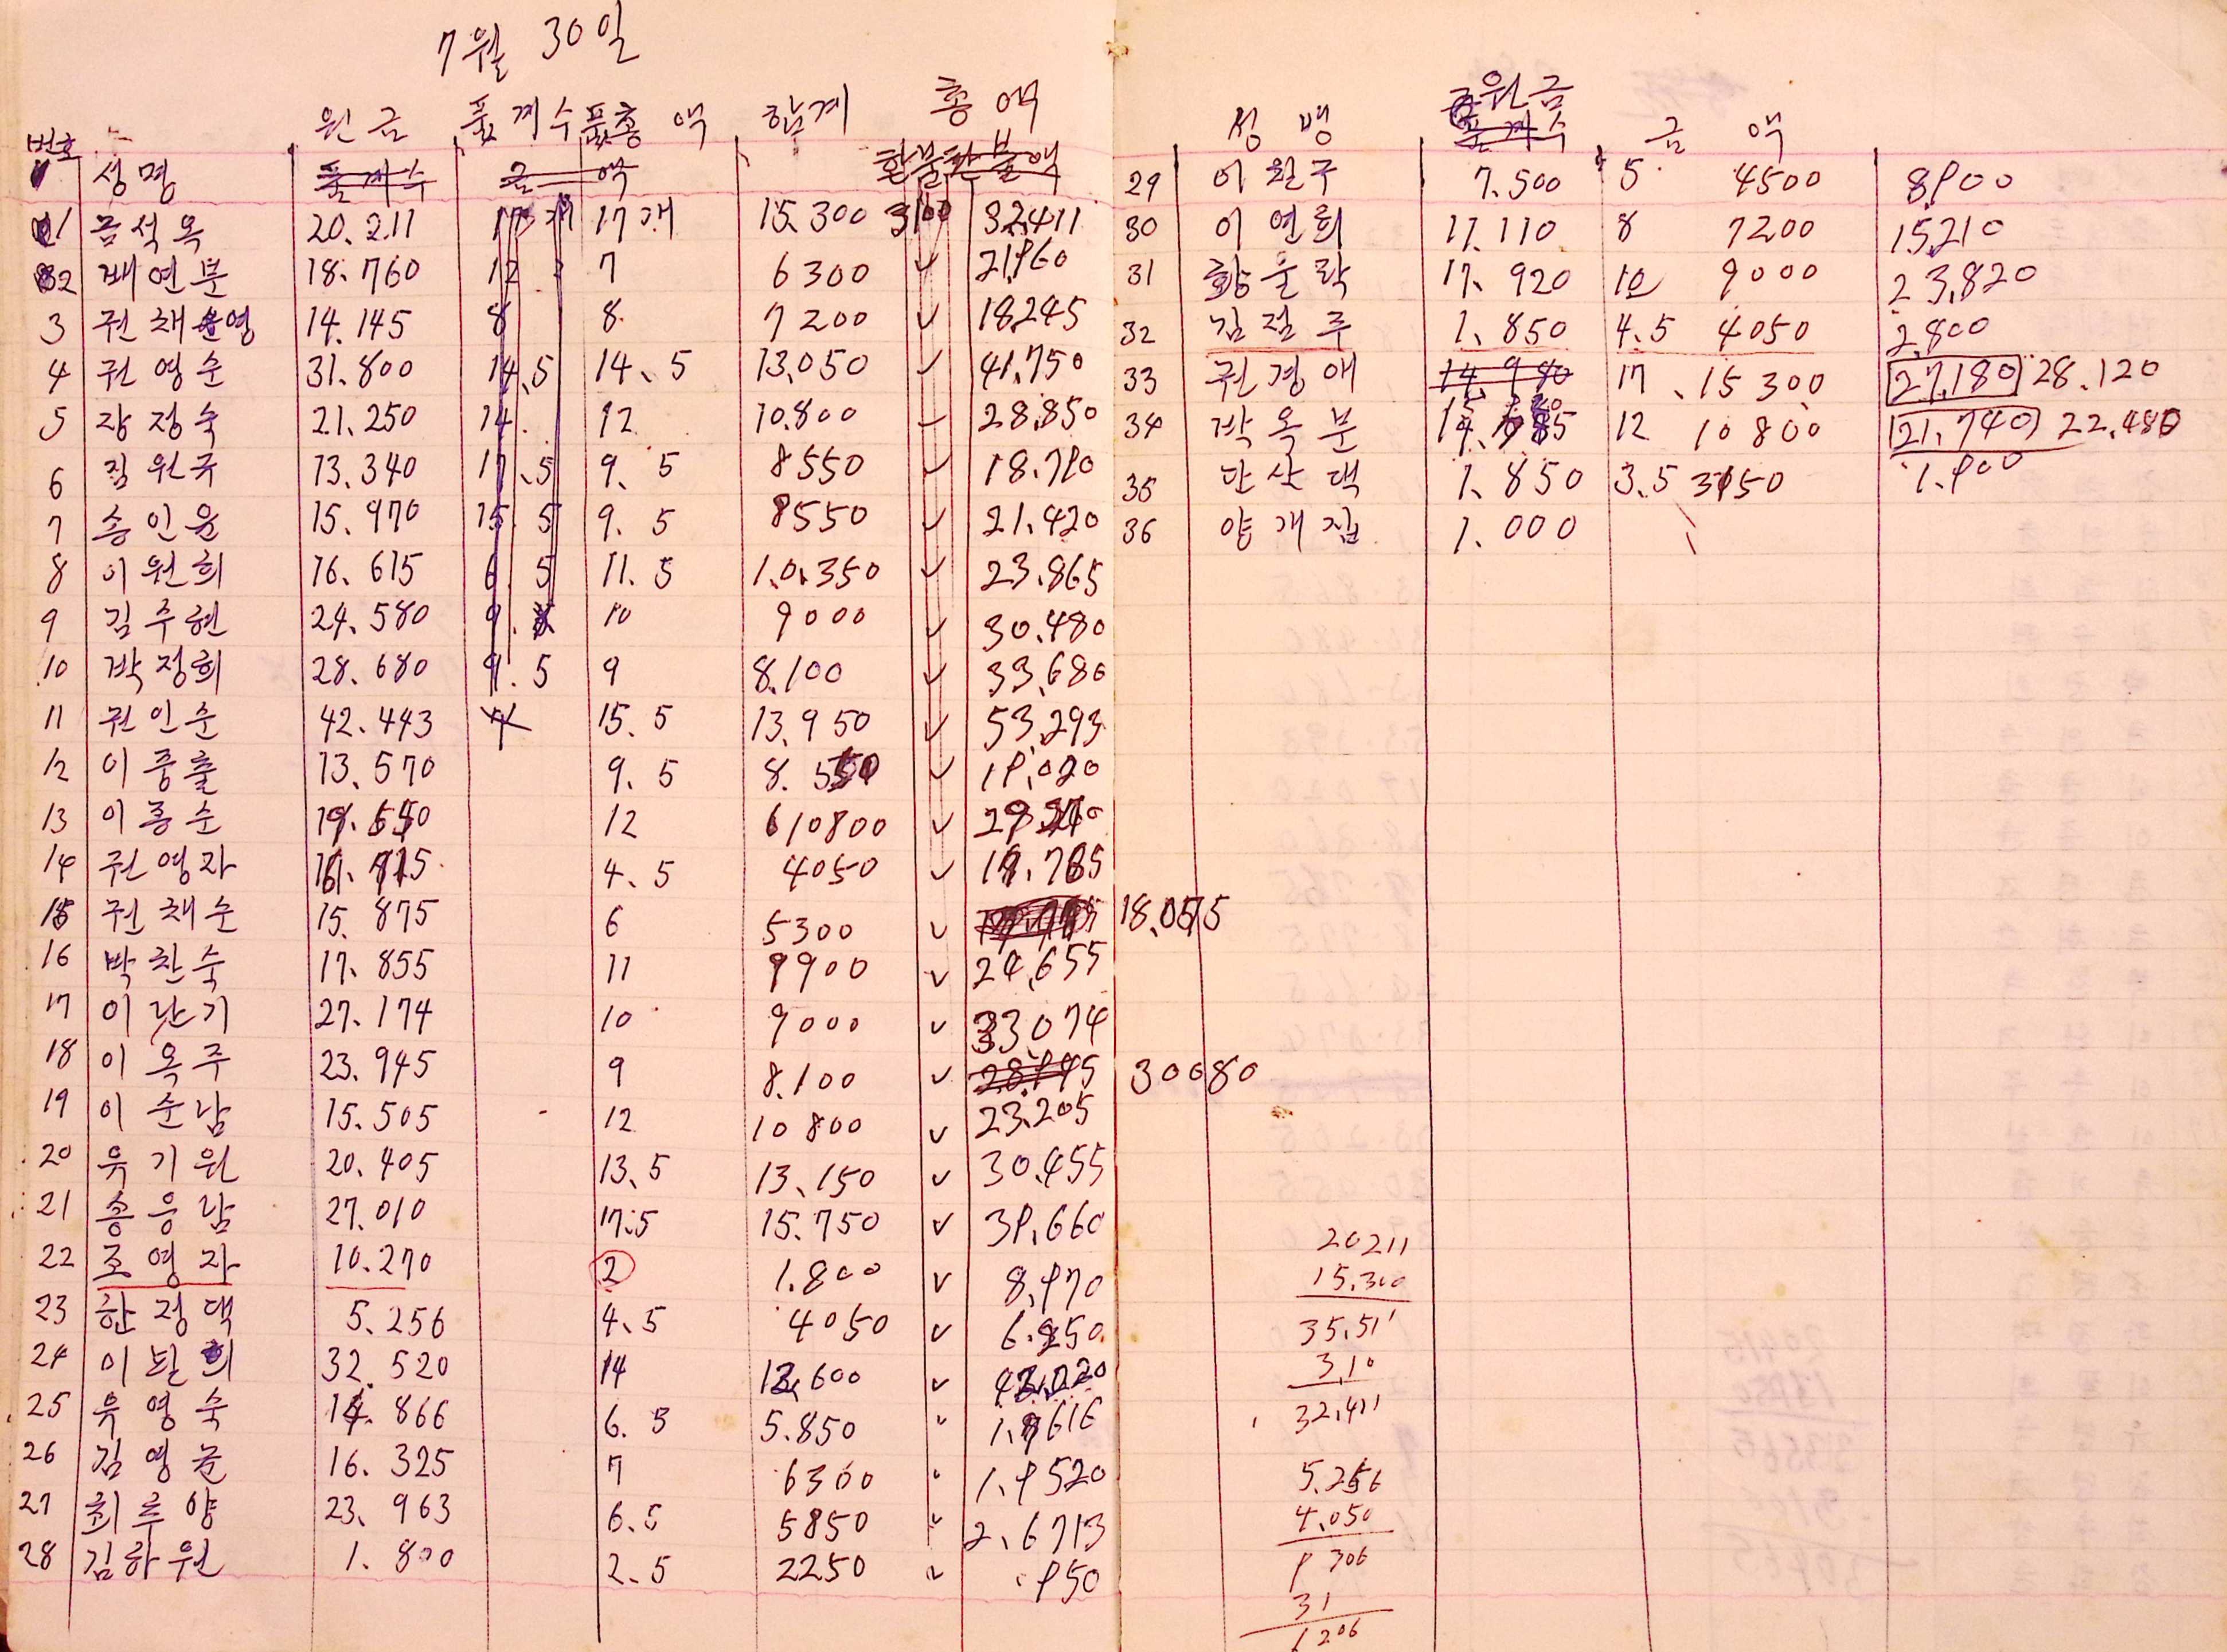 7월 30일
원금 품계수 품총액 합계 총액
번호 성명
1 금석옥 20.211 17개 15.300 3100 32,411
2 배연분 18.760 12 7 6300 ✓ 21,960
3 권채영 14.145 8 8 7200 ✓ 18245
4 권영순 31.800 14.5 14.5 13,050 ✓ 41,750
5 장정숙 21.250 14 12 10.800 28.850
6 김원규 13.340 17.5 9.5 8550 ✓ 18.790
7 송인윤 15.970 15.5 9.5 8550 ✓ 21.420
8 이원희 16.615 6.5 11.5 10.350 ✓ 23.865
9 김주현 24.580 10 9000 ✓ 30.480
10 박정희 28.680 9.5 9 8.100 ✓ 33,680
11 권인순 42.443 15.5 13.950 ✓ 53,293
12 이중출 13.570 9.5 8.550 ✓ 19,020
13 이종순 12 10800 ✓
14 권영자 4.5 4050 ✓
15 권채순 15.875 6 5300 ✓ 18,075
16 박찬숙 17.855 11 9900 ✓ 24,655
17 이난기 27.174 10 9000 ✓ 33,074
18 이옥주 23.945 9 8.100 ✓ 28,945 30080
19 이순남 15.505 12 10800 ✓ 23,205
20 유기원 20.405 13.5 13.150 ✓ 30.455
21 송응남 27.010 17.5 15.750 ✓ 39,660
22 조영자 10.270 2 1.800 ✓ 8,970
23 한정댁 5.256 4.5 4050 ✓
24 32.520 14 12,600 ✓
25 유영숙 14.866 6.5 5.850 "
26 김영눈 16.325 7 6300 " 1.9520
27 최루양 23.963 6.5 5850 " 2.6713
28 김하원 1.800 2.5 2250 " .950
성명 원금 금액
29 이원구 7.500 5 4500 8900
30 이연희 11.110 8 7200 15,210
31 황윤락 17.920 10 9000 23,820
32 김점주 1.850 4.5 4050 2,800
33 권경애 14.980 17 15300 27,180 28.120
34 박옥분 12 10800 21,740 22.480
35 단산댁 1.850 3.5 3150 1.900
36 양개집 1.000
20211
15.300
35.511
3,10
32,411
5.256
4.050
9306
31
6206